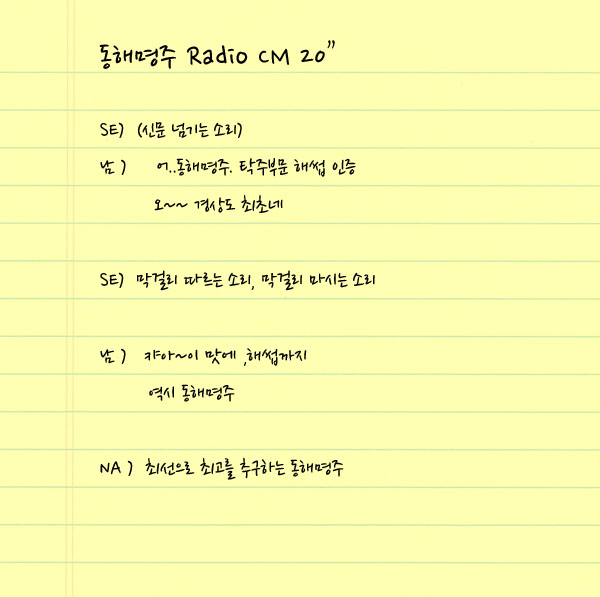 동해명주 Radio CM 20"
SE) (신문 넘기는 소리)
남) 어..동해명주. 탁주부문 해썹 인증
오~~ 경상도 최초네
SE) 막걸리 따르는 소리, 막걸리 마시는 소리
남) 캬아~이 맛에 ,해썹까지
역시 동해명주
NA) 최선으로 최고를 추구하는 동해명주